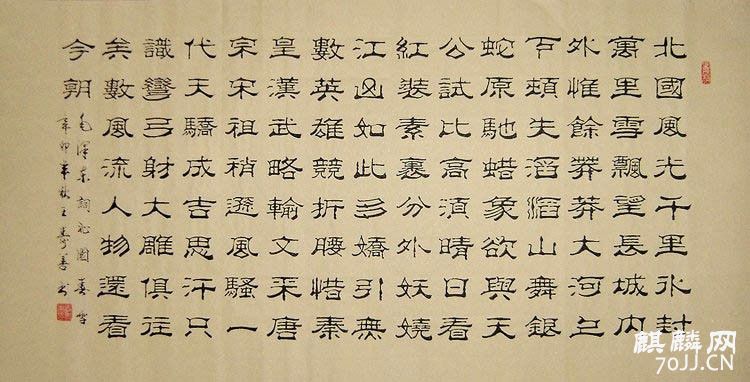 北國風光千里冰封
萬里雪飄望長城內
外惟餘莽莽大河上
下頓失滔滔山舞銀
蛇原馳蜡象欲與天
公試比高須晴日看
紅装素裹分外妖嬈
江山如此多嬌引無
數英雄競折腰惜秦
皇漢武略輸文采唐
宗宋祖稍遜風騷一
代天驕成吉思汗只
識彎弓射大雕俱往
矣數風流人物還看
今朝
毛澤東詞沁園春雪
辛卯年秋王壽善书
麒麟网
70JJ.CN